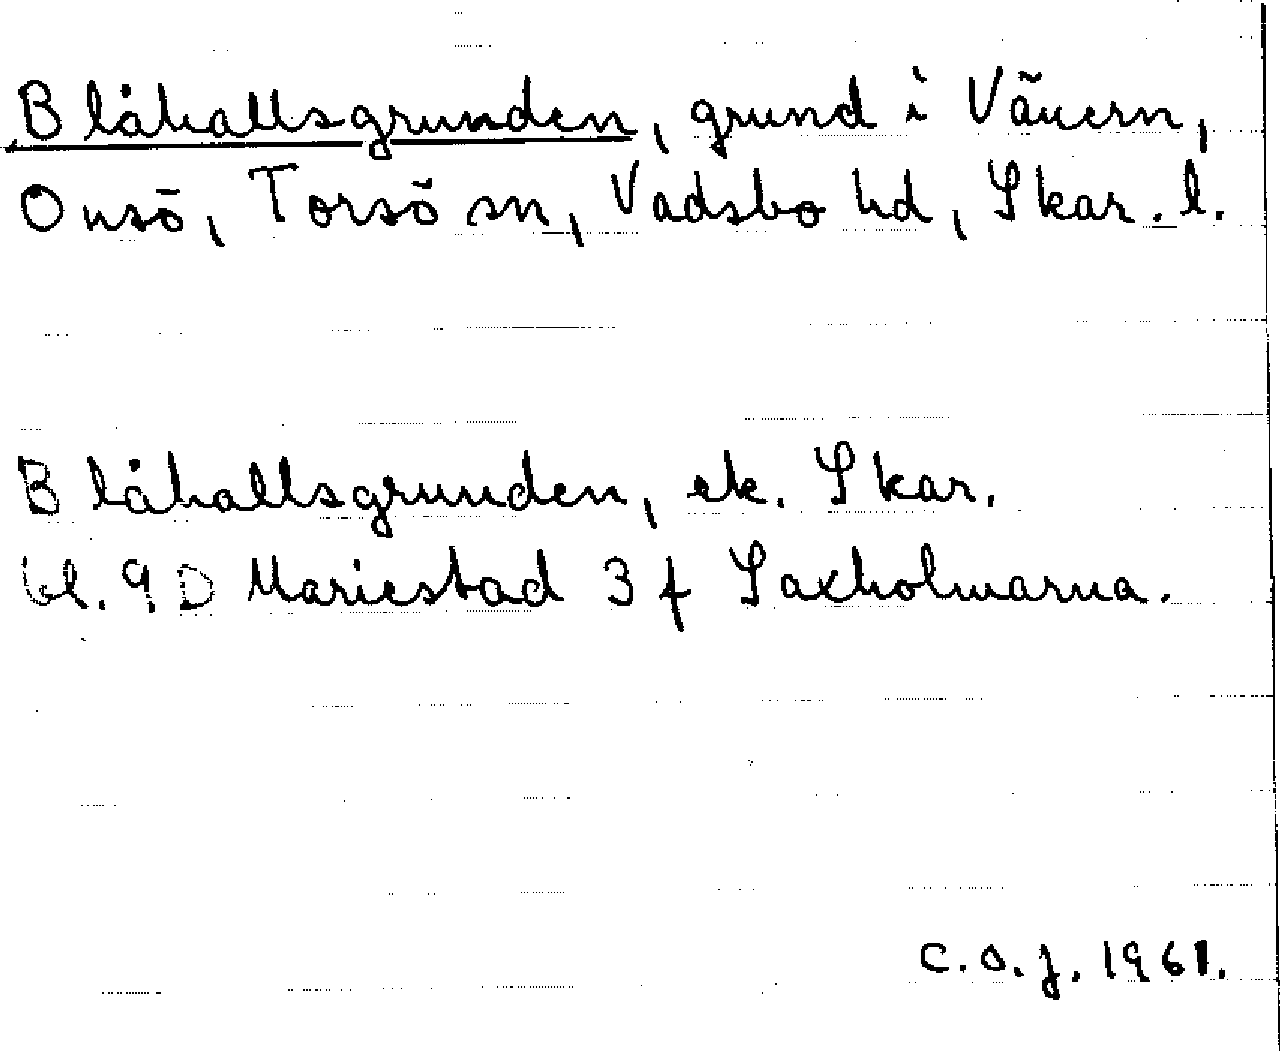 Blåhallsgrunden, grund i Vänern,
Onsö, Torsö sn, Vadsbo hd, Skar. l.
Blåhallsgrunden, ek. Skar.
bl. 9 D Mariestad 3 f Saxholmarna.
C.O.J. 1961.